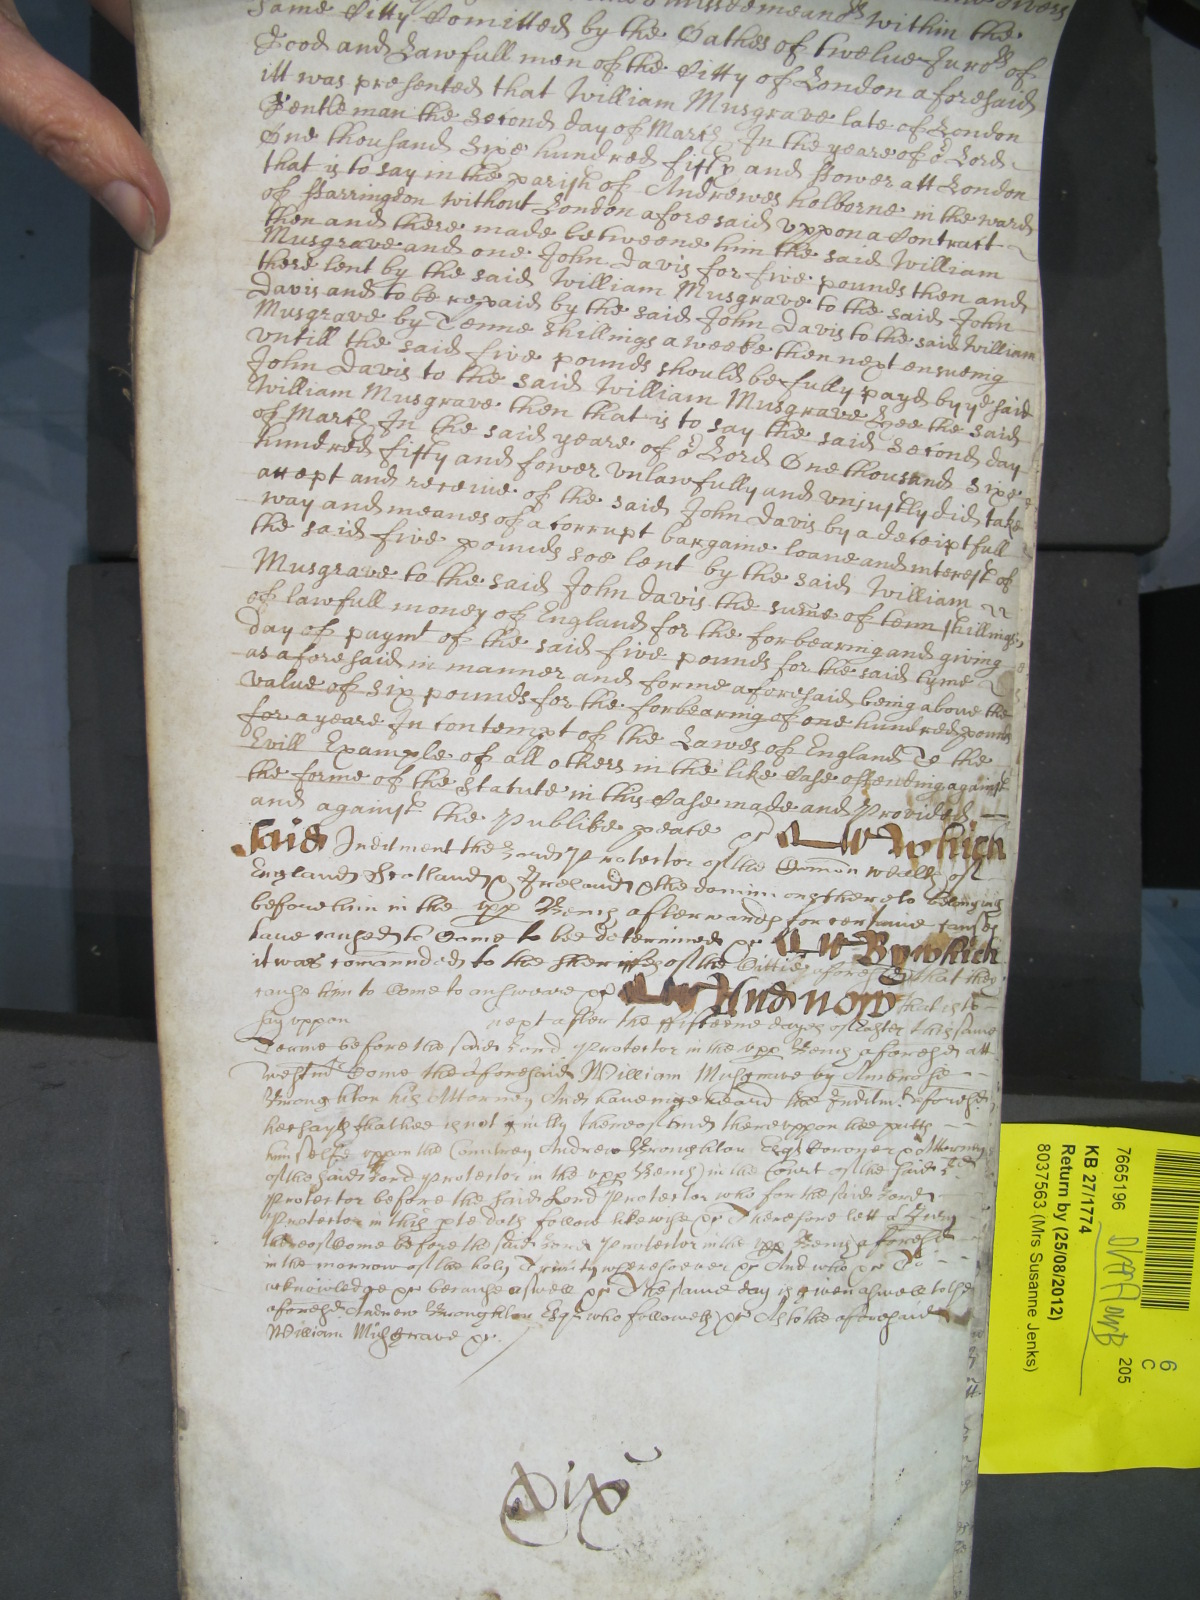 same Citty Comitted by the Oathes of twelue Juro^rs of
Good and Lawfull men of the Citty of London aforesaid
itt was presented that William Musgrave late of London
Gentleman the second day of March In the yeare of o^r Lord
One thousand Sixe hundred fifty and ffower att London
that is to say in the parish of Andrewes holborne in the ward
of ffarringdon without London aforesaid vppon a Contract
then and there made betweene him the said William
Musgrave and one John Davis for five pounds then and
there lent by the said William Musgrave to the said John
Davis and to be repaid by the said John Davis to the said William
Musgrave by Tenne shillings a weeke then next ensueing
vntill the said five pounds should be fully payd by y^e said
John Davis to the said William Musgrave Hee the said
William Musgrave then that is to say the said second day
of March In the said yeare of o^r Lord One thousand Sixe
hundred fifty and fower vnlawfully and vnjustly did take
accept and receive of the said John Davis by a deceiptfull
way and meanes of a corrupt bargaine loane and interest of
the said five pounds soe lent by the said William
Musgrave to the said John Davis the sume of tenn shillings
of lawfull money of England for the forbearing and giving
day of paym^t of the said five pounds for the said tyme
as aforesaid in manner and forme aforesaid being above the
value of six pounds for the forbearing of one hundred pounds
for a yeare In contempt of the Lawes of England To the
Evill Example of all others in the like Case offending against
the forme of the Statute in this Case made and Provided
and against the Publike peace &c Which
said Inditment the Lord Protector of the Comon wealth of
England Scotland & Ireland & the dominions thereto belonging
before him in the vpp Bench afterwards for certaine causes
have caused to Come to bee determined &c By which
it was comannded to the Sheriffes of the Cittie aforesd that they
cause him to Come to answeare &c And now that is to
say vppon next after the fifteene dayes of Easter this same
Terme before the said Lord Protector in the vpp Bench aforesd att
Westm^r Come the aforesaid William Musgrave by Ambrose
Broughton his Attorney And haveinge heard the Inditm^t aforesd
hee sayth that hee is not guilty thereof And therevppon hee putts
himselfe vppon the Countrey Andrew Broughton Esq^r Coroner & Attorney
of the said Lord Protector in the vpp Bench in the Court of the said Lord
Protector before the said Lord Protector who for the said Lord
Protector in this pte doth follow likewise &c Therefore lett a Jury
thereof Come before the said Lord Protector in the vpp Bench aforesd
in the morrow of the holy Trinity wheresoever &c And who &c To
acknowledge &c because aswell &c The same day is given aswell to the
aforesd Andrew Broughton Esq^r who followeth &c As to the aforesaid
William Musgrave &c.
Dix^r
7665196
KB 27/1774
Return by (25/08/2012)
8037563 (Mrs Susanne Jenks)
6
C
205